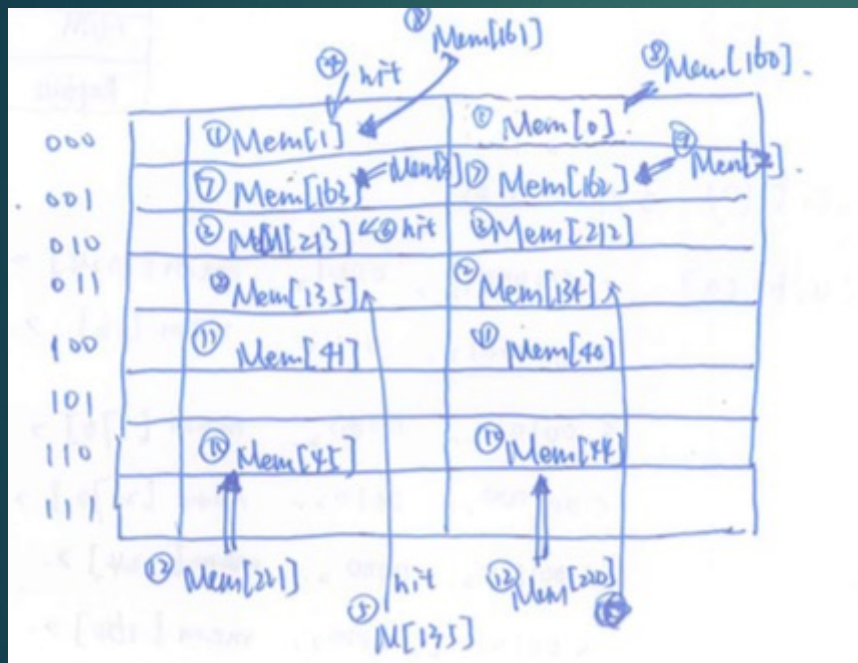 ⑧ Mem[161]
④ hit
⑧ Mem[160].
000 ① Mem[1] ① Mem[0]
001 ⑦ Mem[163] ⑦ Mem[162]
010 ③ Mem[213] ⑥ hit ③ Mem[212]
011 ② Mem[135] ② Mem[134]
100 ⑪ Mem[41] ⑪ Mem[40]
101
110 ⑩ Mem[45] ⑩ Mem[44]
111
⑫ Mem[221] hit ⑫ Mem[220]
⑤ M[135]